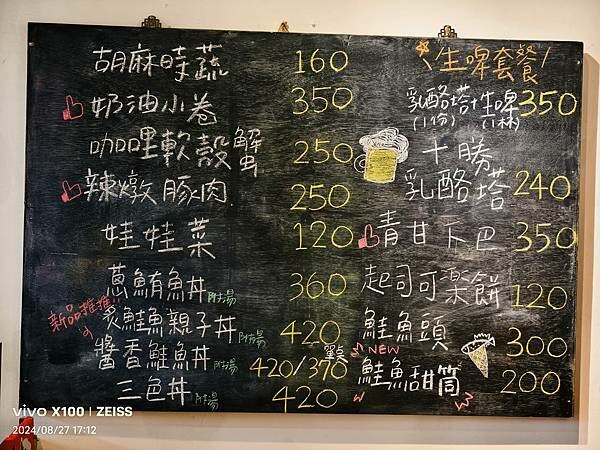 胡麻時蔬 160
奶油小卷 350
咖哩軟殼蟹 250
辣燉豚肉 250
娃娃菜 120
蔥鮪魚丼 附湯 360
新品推推
炙鮭魚親子丼 附湯 420
醬香鮭魚丼 附湯 420/370 單點
三色丼 附湯 420
生啤套餐
乳酪塔+生啤 350
(1份) (1杯)
十勝
乳酪塔 240
青甘下巴 350
起司可樂餅 120
鮭魚頭 300
NEW
鮭魚甜筒 200
vivo X100 | ZEISS
2024/08/27 17:12